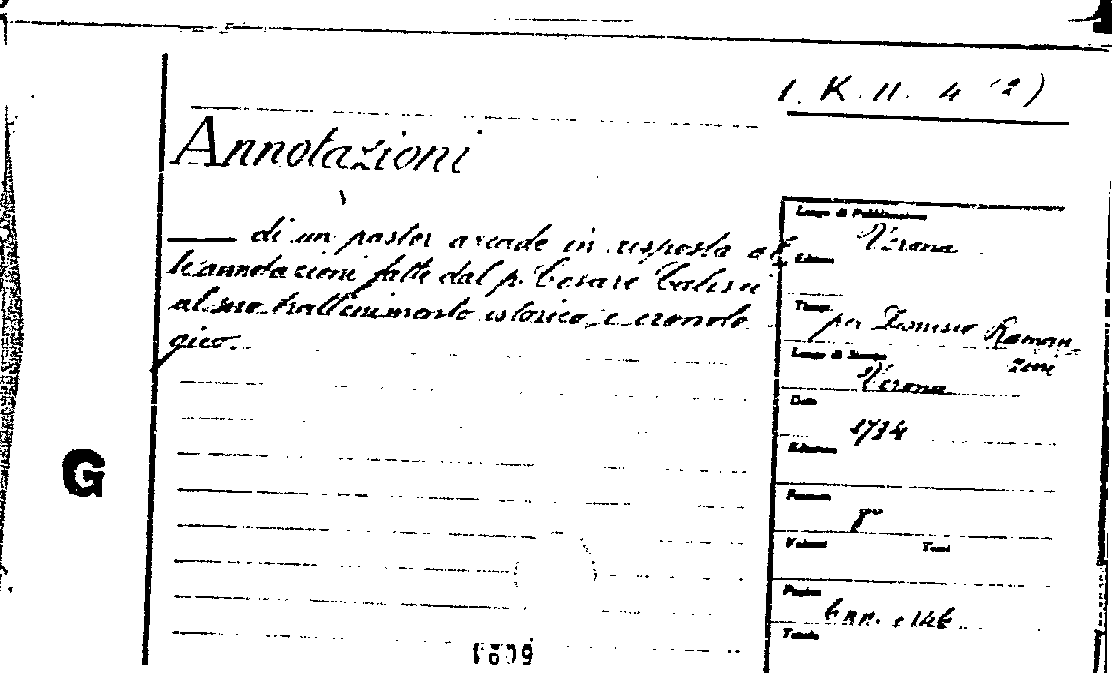 1. K. II. 4 (2)
Annotazioni
di un pastor arcade in risposta al
le annotazioni fatte dal p. Cesare Calini
al suo trattenimento istorico, e cronolo
gico.
G
Luogo di Pubblicazione
Verona
Editore
Tipogr.
per Dionisio Raman
zini
Luogo di Stampa
Verona
Data
1734
Edizione
Formato
8°
Volumi Tomi
Pagine
6 nn. e 146
Tavole